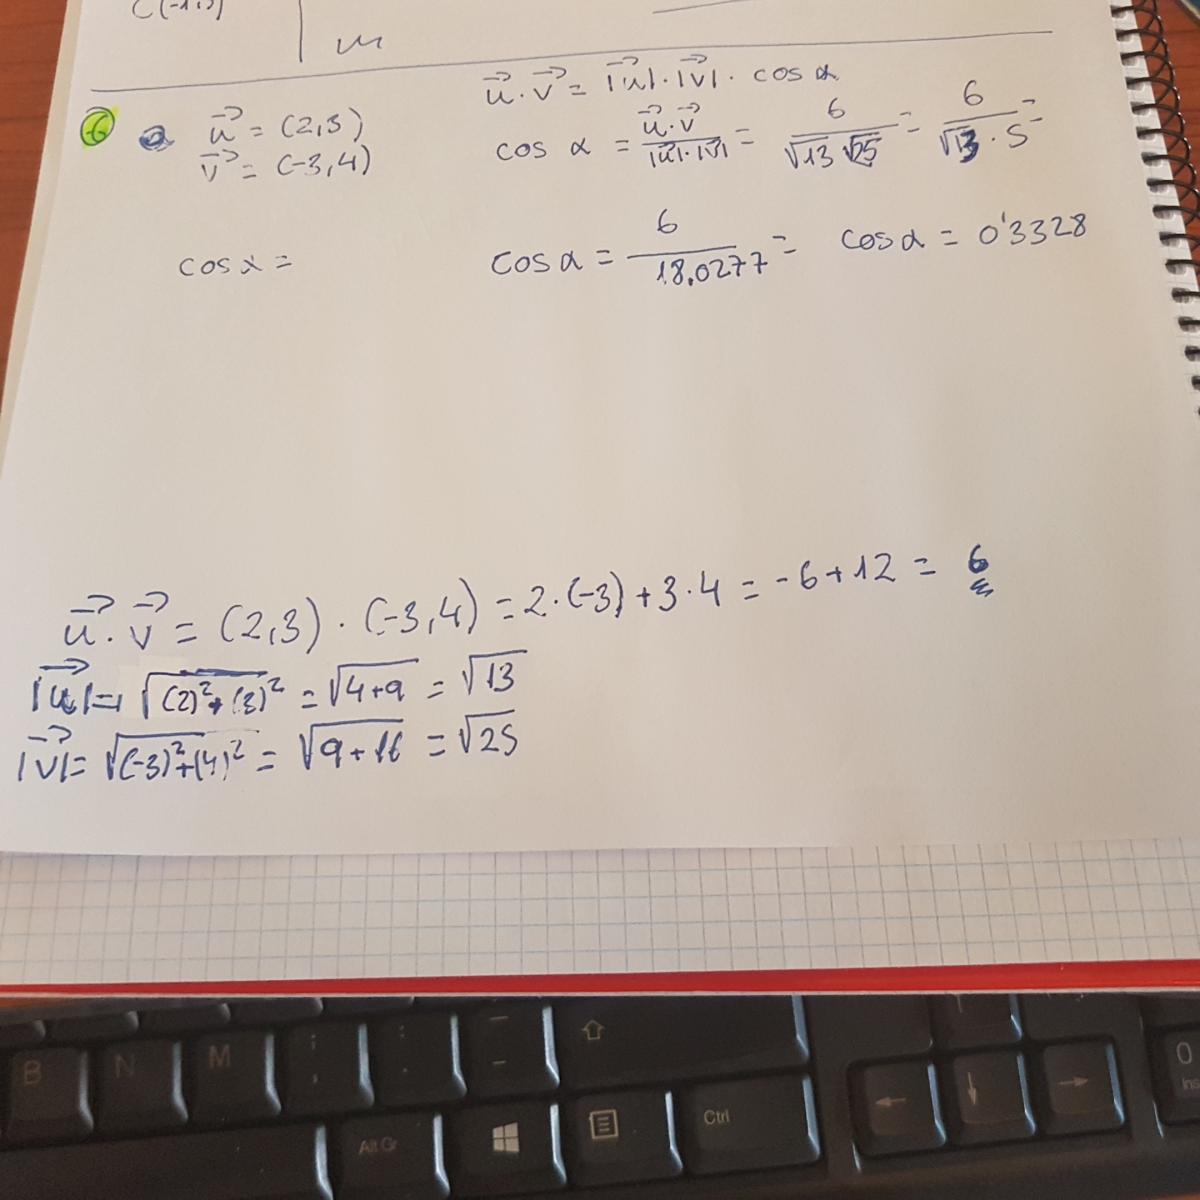 C(-1,5)
m
u⃗ · v⃗ = |u⃗| · |v⃗| · cos α
6 a u⃗ = (2,3)
v⃗ = (-3,4)
cos α = u⃗·v⃗ / |u⃗|·|v⃗| = 6 / √13 √25 = 6 / √13 · 5 =
cos α =
cos α = 6 / 18.0277 = cos α = 0'3328
u⃗ · v⃗ = (2,3) · (-3,4) = 2·(-3)+3·4 = -6+12 = 6
|u⃗| = √(2)²+(3)² = √4+9 = √13
|v⃗| = √(-3)²+(4)² = √9+16 = √25
B N M ; , : . _ - ⇧
Alt Gr Ctrl ← ↓ → 0 Ins